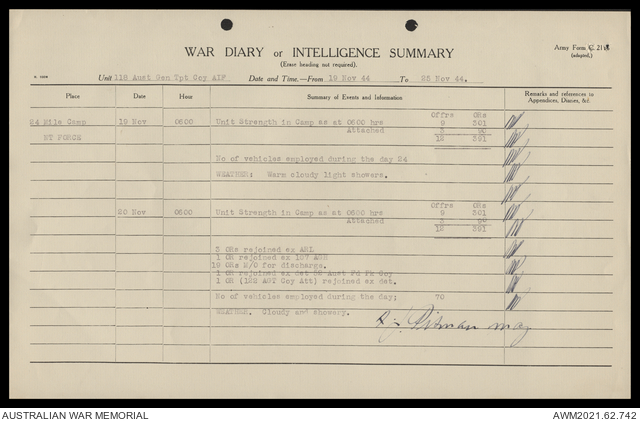 WAR DIARY or INTELLIGENCE SUMMARY
(Erase heading not required).
Army Form C. 2118.
(adapted.)
Unit 118 Aust Gen Tpt Coy AIF Date and Time.—From 19 Nov 44 To 25 Nov 44.
Place Date Hour Summary of Events and Information Remarks and references to Appendices, Diaries, &c.
Offrs ORs
24 Mile Camp 19 Nov 0600 Unit Strength in Camp as at 0600 hrs 9 301
Attached 3 90
NT FORCE 12 391
No of vehicles employed during the day 24
WEATHER: Warm cloudy light showers.
Offrs ORs
20 Nov 0600 Unit Strength in Camp as at 0600 hrs 9 301
Attached 3 90
12 391
3 ORs rejoined ex ARL
1 OR rejoined ex 107 AGH
19 ORs M/O for discharge.
1 OR rejoined ex det 52 Aust Fd Pk Coy
1 OR (122 AGT Coy Att) rejoined ex det.
No of vehicles employed during the day: 70
WEATHER. Cloudy and showery.
Pitman Maj
AUSTRALIAN WAR MEMORIAL AWM2021.62.742